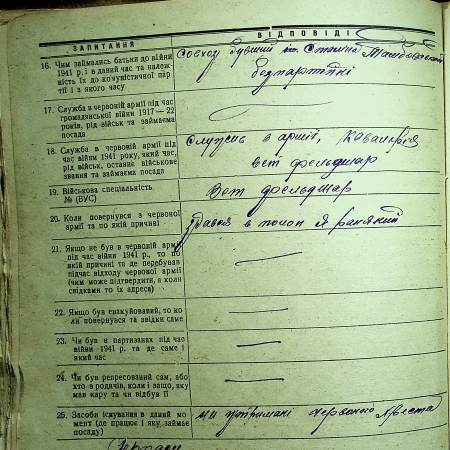 ЗАПИТАННЯ
ВІДПОВІДІ
16. Чим займались батьки до війни
1941 р. і в даний час та належ-
ність їх до комуністичної пар-
тії і з якого часу
Совхоз бувший ім. Сталіна
безпартійні
17. Служба в червоній армії під час
громадянської війни 1917—22
років, рід військ та займаєма
посада
18. Служба в червоній армії під
час війни 1941 року, який час,
рід військ, останнє військове
звання та займаєма посада
Служень в армії, Кавалерія
вет фельдшар
19. Військова спеціальність
№ (ВУС)
Вет фельдшар
20. Коли повернувся з червоної
армії та по якій причині
здався в полон я раняний
21. Якщо не був в червоній армії
під час війни 1941 р., то по
якій причині та де перебував
підчас відходу червоної армії
(чим може підтвердити, а коли
свідками то їх адреса)
22. Якщо був евакуйований, то ко-
ли повернувся та звідки саме
23. Чи був в партизанах під час
війни 1941 р. та де саме і
який час
24. Чи був репресований сам, або
хто з родичів, коли і защо, яку
мав кару та чи відбув її
25. Засоби існування в даний мо-
мент (де працює і яку займає
посаду)
на утримані червоного Хреста